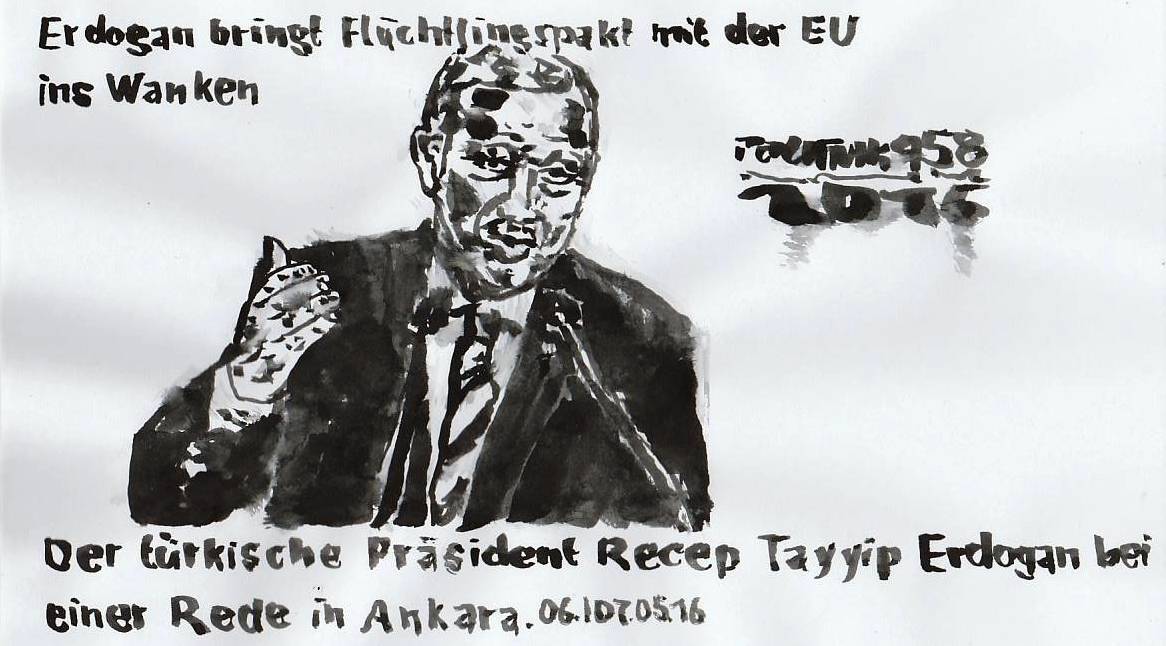 Erdogan bringt Flüchtlingspakt mit der EU
ins Wanken
958
Der türkische Präsident Recep Tayyip Erdogan bei
einer Rede in Ankara. 06./07.05.16